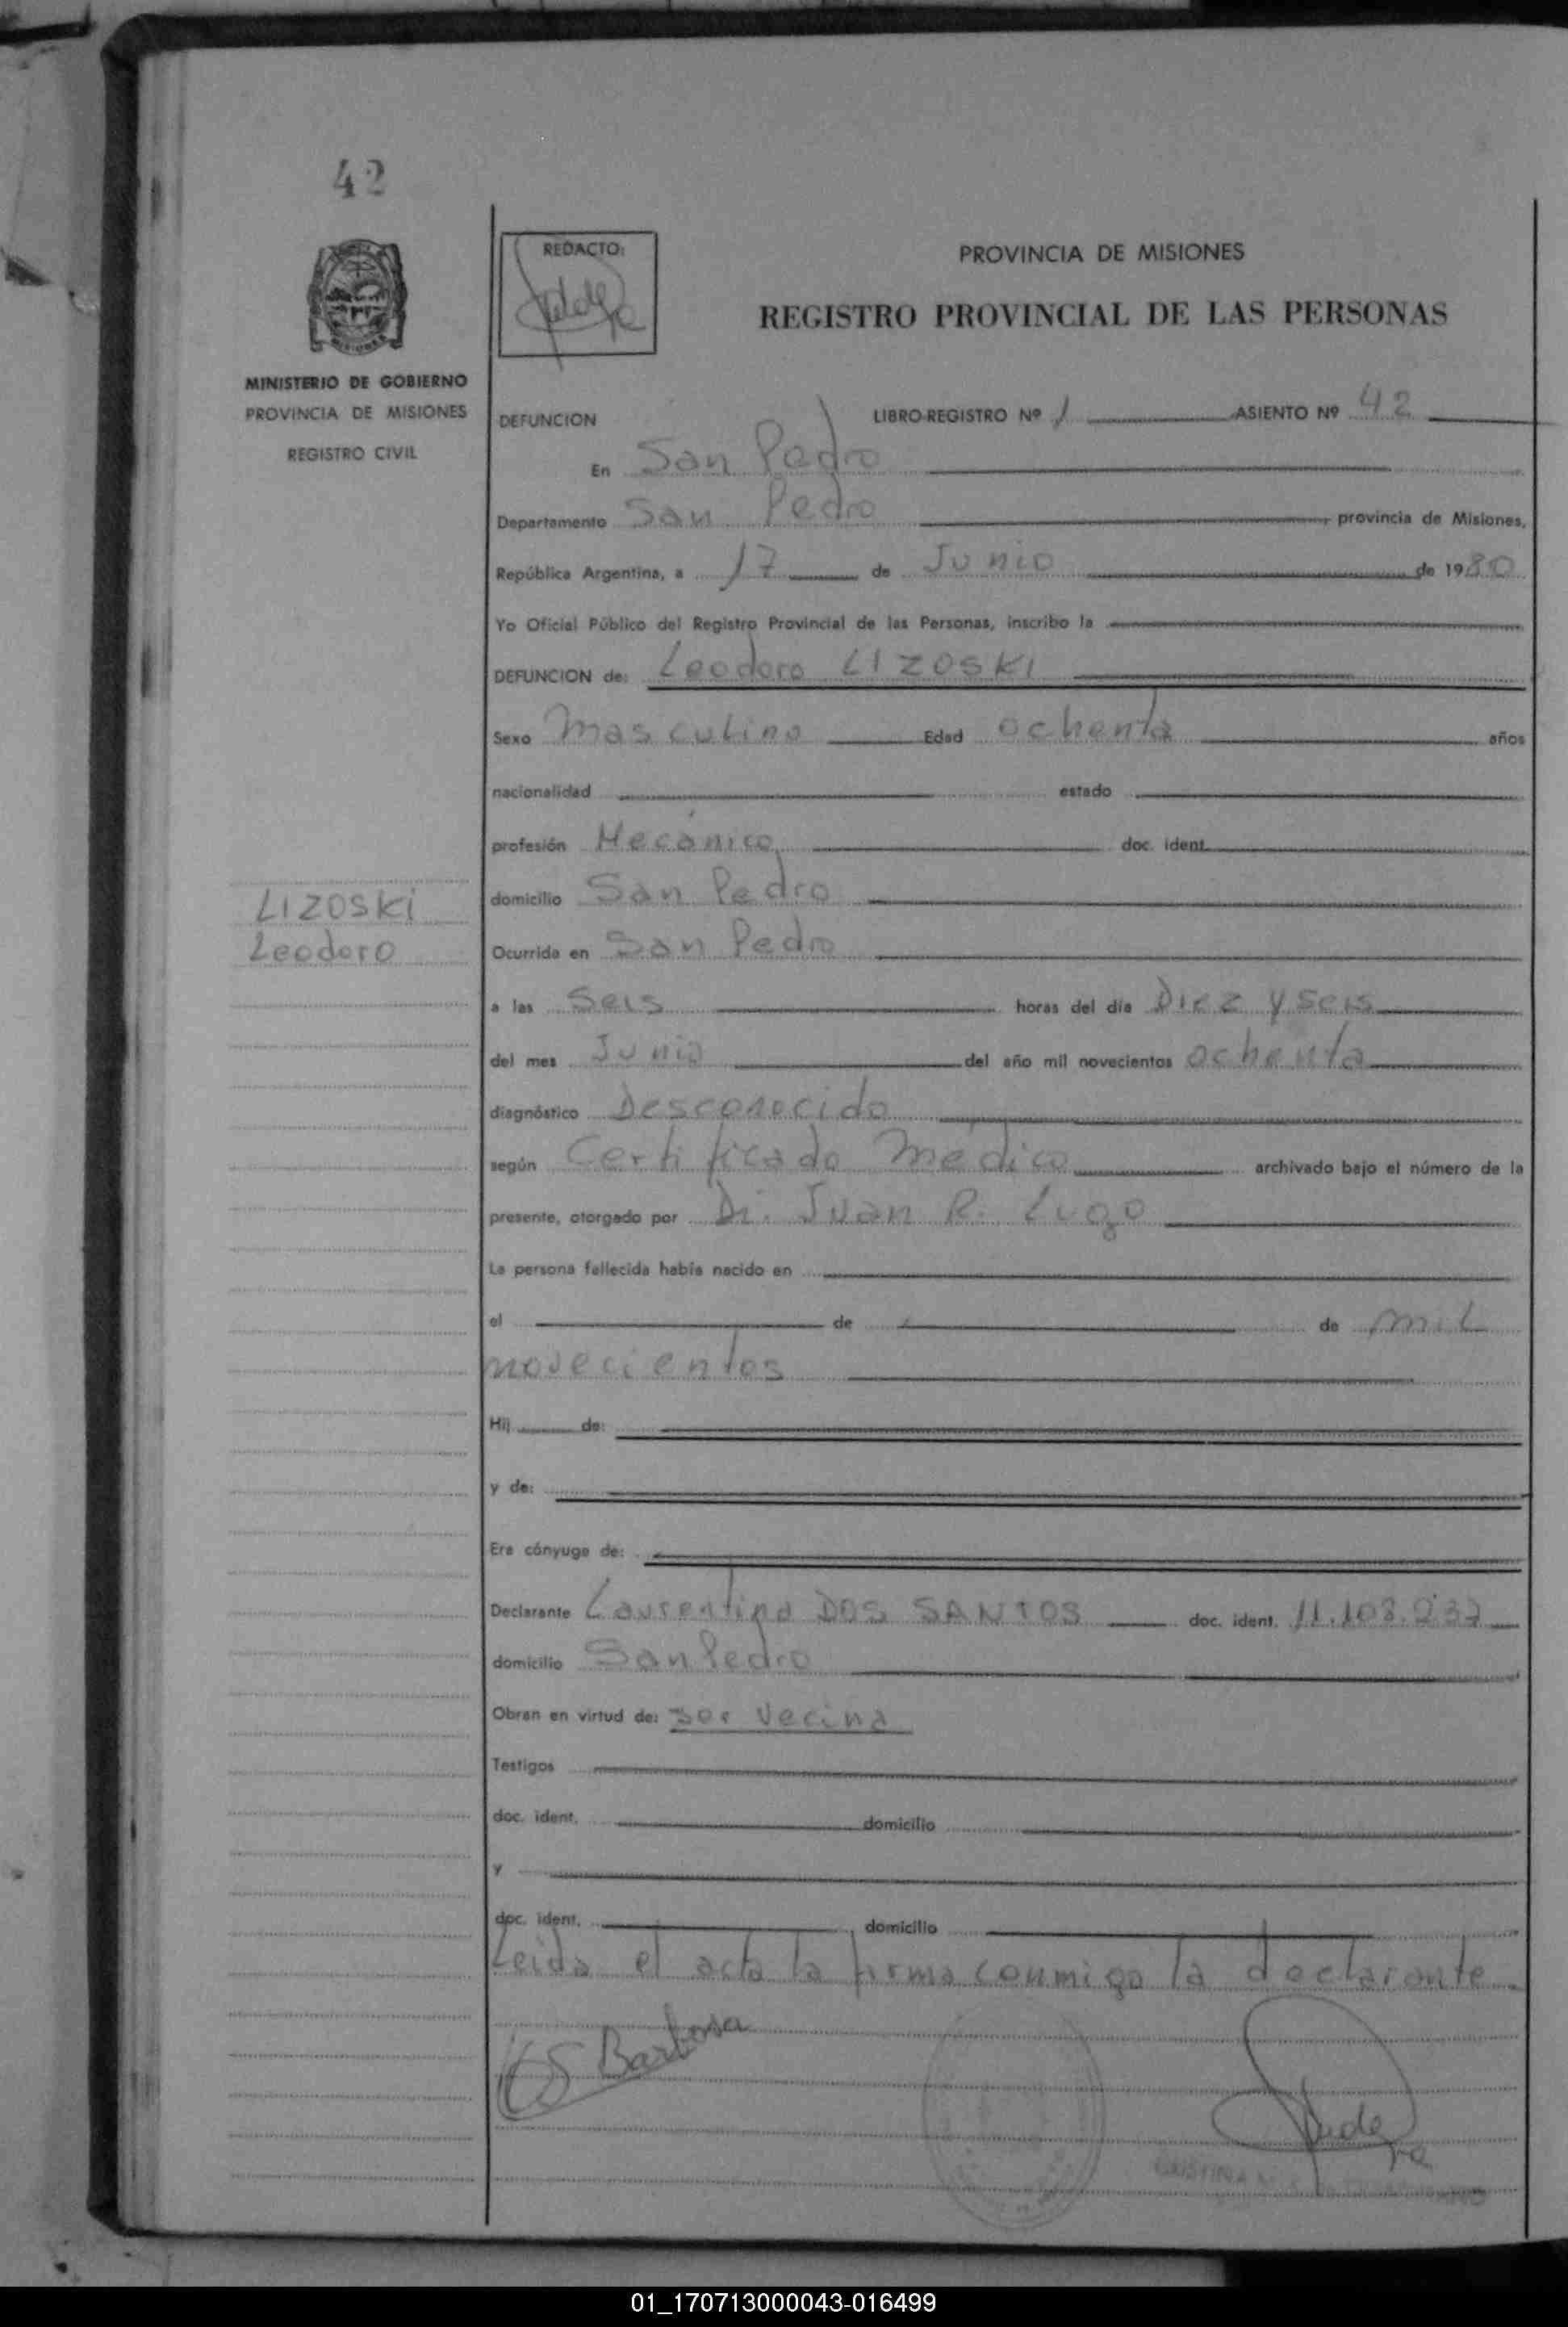 42
REDACTO:
PROVINCIA DE MISIONES
REGISTRO PROVINCIAL DE LAS PERSONAS
MISIONES
MINISTERIO DE GOBIERNO
PROVINCIA DE MISIONES
REGISTRO CIVIL
DEFUNCION LIBRO-REGISTRO Nº 1 ASIENTO Nº 42
En San Pedro
Departamento San Pedro provincia de Misiones,
República Argentina, a 17 de Junio de 1980
Yo Oficial Público del Registro Provincial de las Personas, inscribo la
DEFUNCION de: Leodoro LIZOSKI
Sexo Masculino Edad ochenta años
nacionalidad estado
profesión Mecánico doc. ident.
LIZOSKI
Leodoro
domicilio San Pedro
Ocurrida en San Pedro
a las Seis horas del día Diez y seis
del mes Junio del año mil novecientos ochenta
diagnóstico Desconocido
según Certificado Médico archivado bajo el número de la
presente, otorgado por Dr. Juan R. Lugo
La persona fallecida había nacido en
el de de mil
novecientos
Hij de:
y de:
Era cónyuge de:
Declarante Laurentina DOS SANTOS doc. ident. 11.108.237
domicilio San Pedro
Obran en virtud de: ser vecina
Testigos
doc. ident. domicilio
y
doc. ident. domicilio
Leida el acta la firma conmigo la declarante
Barbosa
01_170713000043-016499